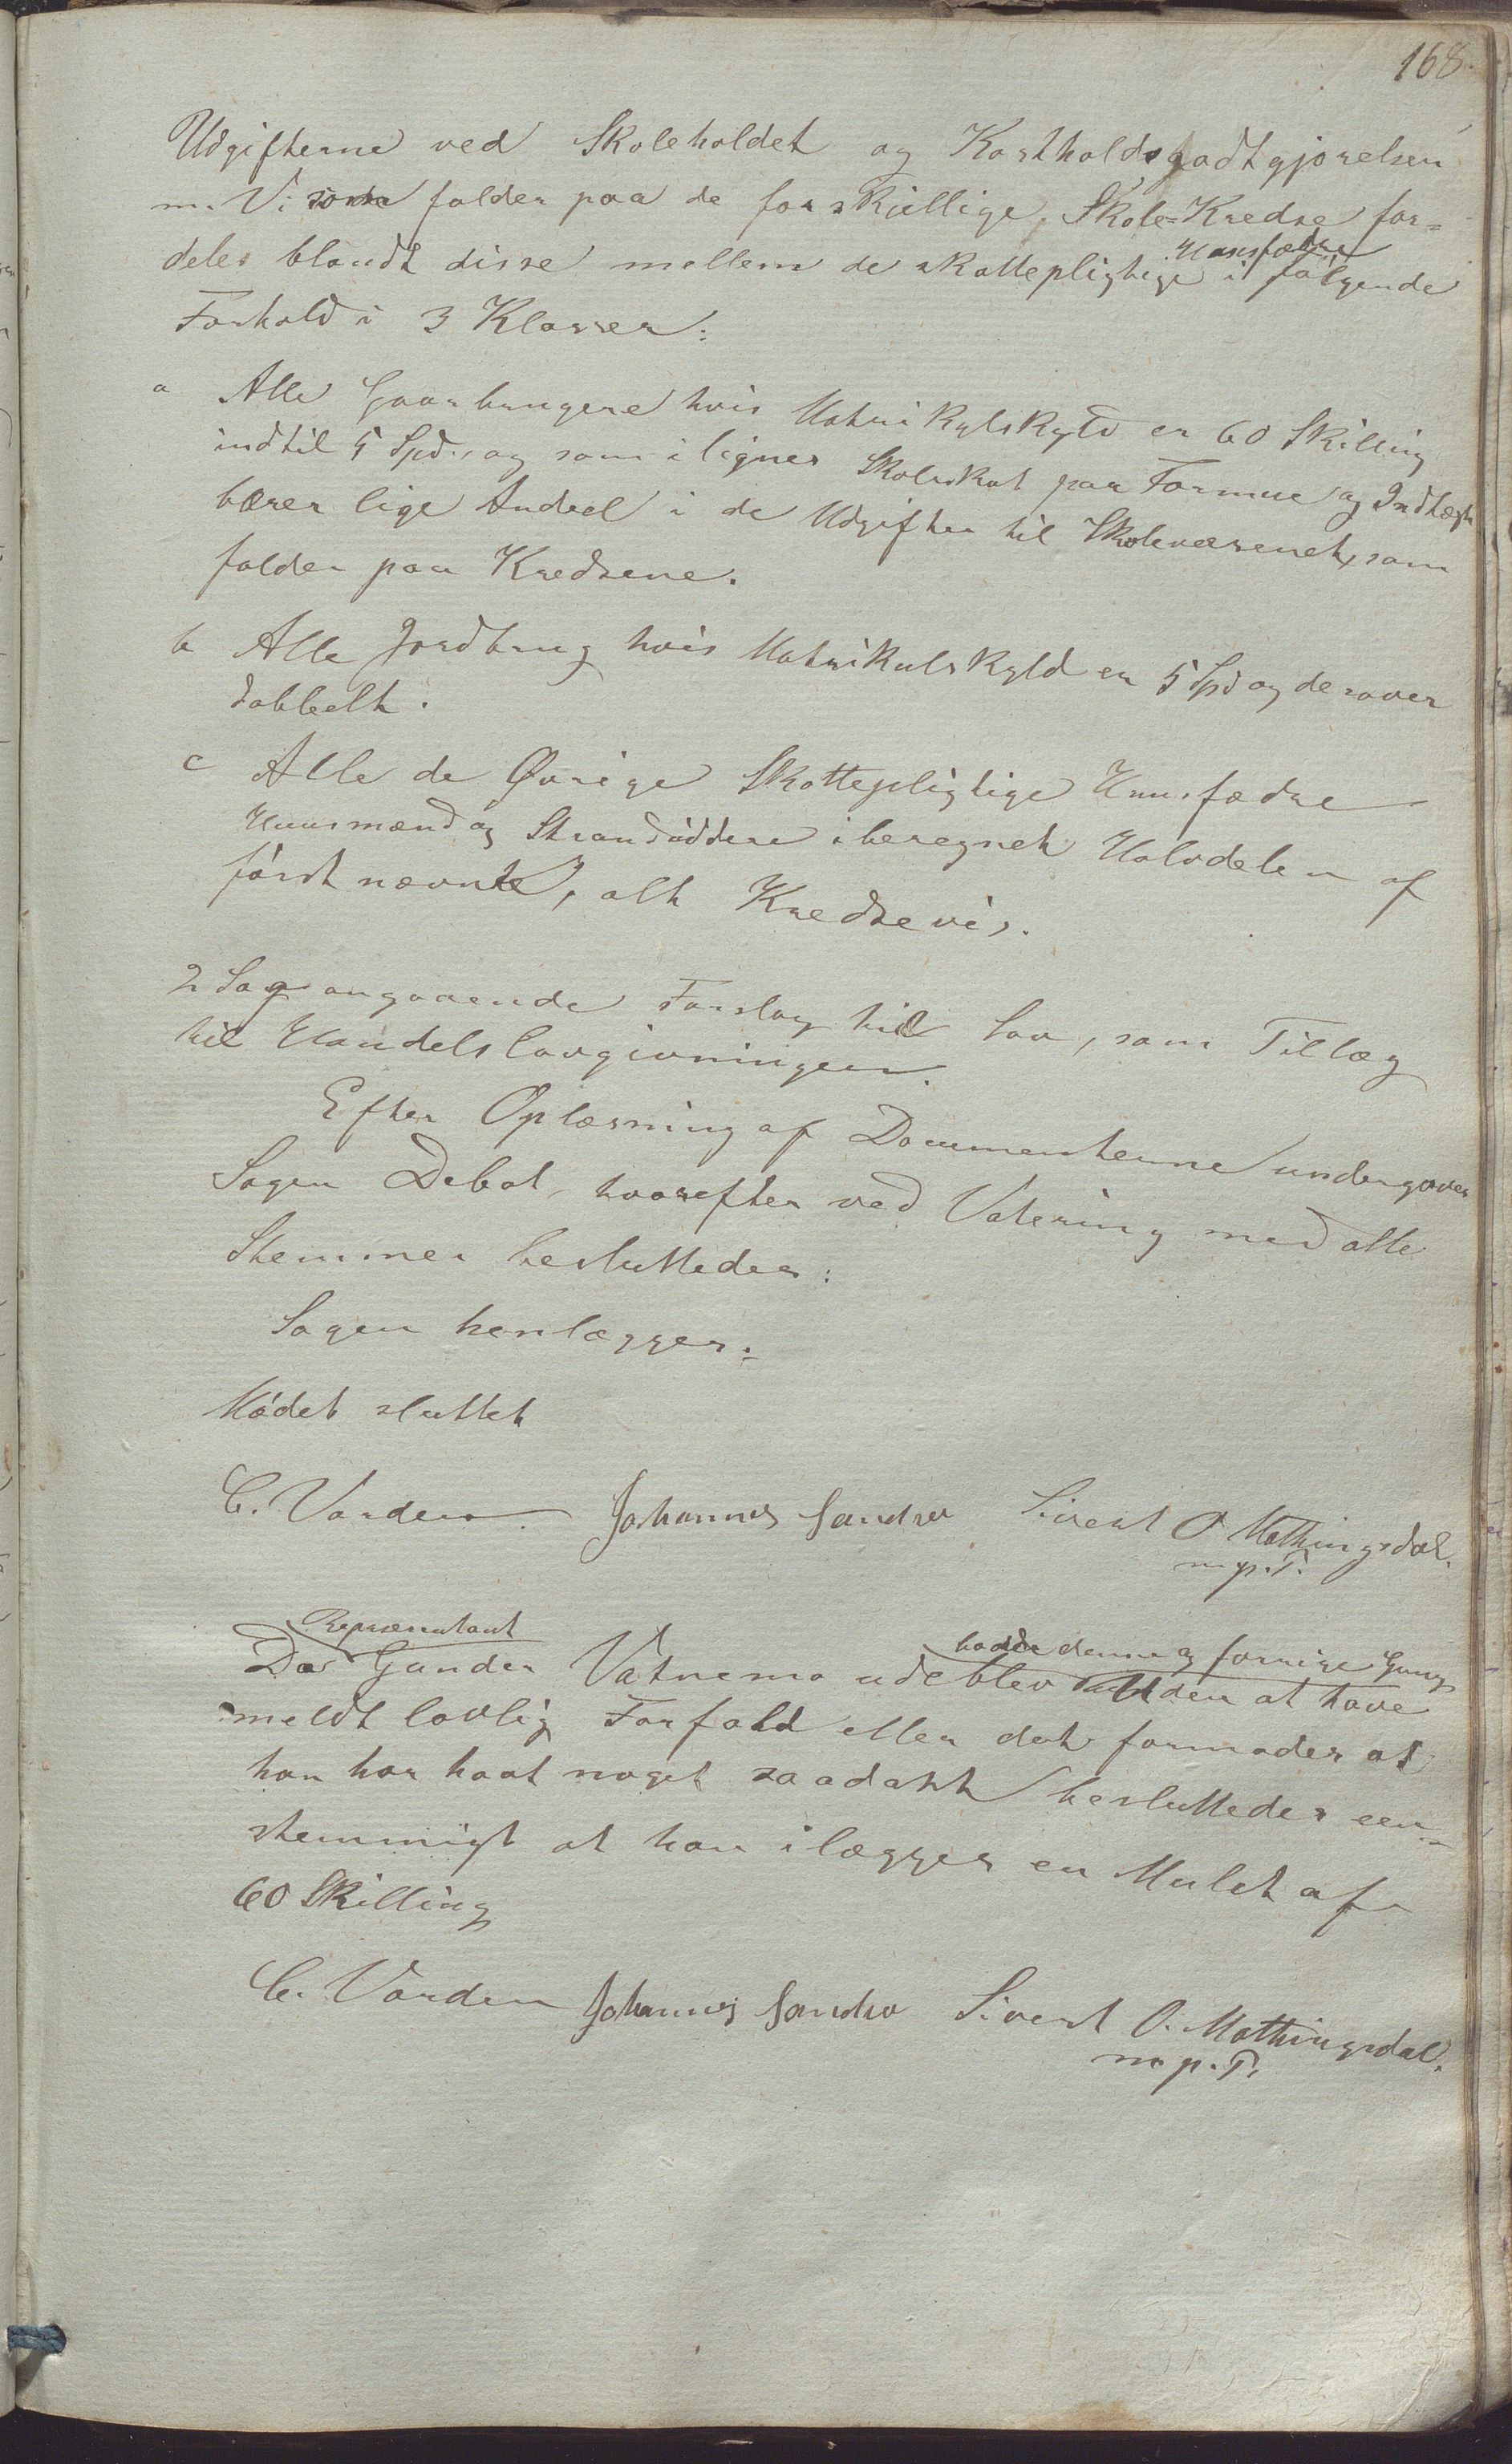 168.
Udgifterne ved Skoleholdet og Kostholdsgodtgjørelsen
m. V. som falder paa de forskjellige Skole-Kredse for-
deles blandt disse mellem de skattepligtige Huusfædre i følgende
Forhold i 3 Klasser:
a Alle Gaarbrugere hvis Matrikylskyld er 60 Skilling
indtil 5 Spd., og som ilignes Skoleskat paa Formue og Indtægt
bærer lige Andeel i de Udgifter til Skolevæsenet, som
falder paa Kredsene.
b Alle Jordbrug hvis Matrikulskyld er 5 Spd og derover
dobbelt.
c Alle de Øvrige Skattepligtige Huusfædre
Huusmænd og Strandsiddere iberegnet Halvdelen af
først nævnte, alt Kredsevis.
2 Sag angaaende Forslag til Lov, som Tillæg
til Handelslovgivningen.
Efter Oplæsning af Documenterne undergaves
Sagen Debat, hvorefter ved Votering med alle
Stemmer besluttedes:
Sagen henlægges.
Mødet sluttet
C. Varden Johannes Sandsa Sivert O Mathingsdal.
m. p. P.
Da Repræsentant Gunder Vatnemo udeblev baade denne og forrige Gang uden at have
meldt lovlig Forfald eller det formodes at
han har havt noget saadant besluttedes een-
stemmigt at han ilægges en Mulct af
60 Skilling
C. Varden Johannes Sandsa Sivert O. Mathingsdal.
m. p. P.